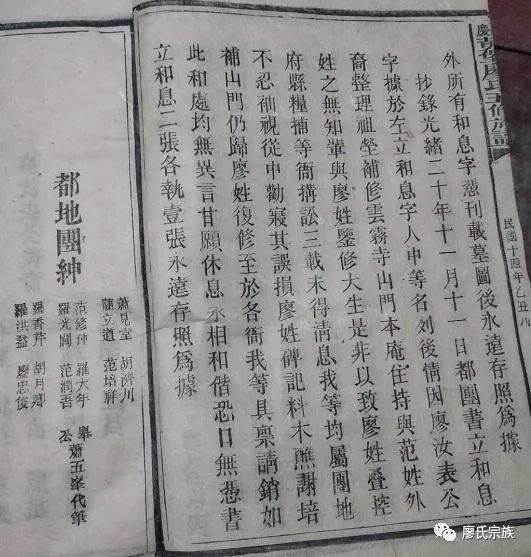 外所有和息字慤刊載墓圖後永遠存照爲據
抄錄光緒二十年十一月十一日都團書立和息
字據於左立和息字人申等名列後情因廖汝表公
裔整理祖塋補修雲霧寺山門本庵住持與范姓外
姓之無知輩與廖姓鑒修大生是非以致廖姓叠控
府縣糧捕等衙搆訟三載未得清息我等均屬團地
不忍袖視從中勸寢其誤損廖姓碑記料木醮謝培
補山門仍歸廖姓復修至於各衙我等具稟請銷如
此和處均無異言甘願休息永相和偕恐口無憑書
立和息二張各執壹張永遠存照爲據
都地團紳
蕭見堂 胡濟川
陳立道 范培祥
范修仲 羅大年
羅光閶 范潤吾
羅香芹 胡月卿
羅洪益 廖忠俊
公舉蕭五峯代筆
民國十四年乙丑
廖氏宗族